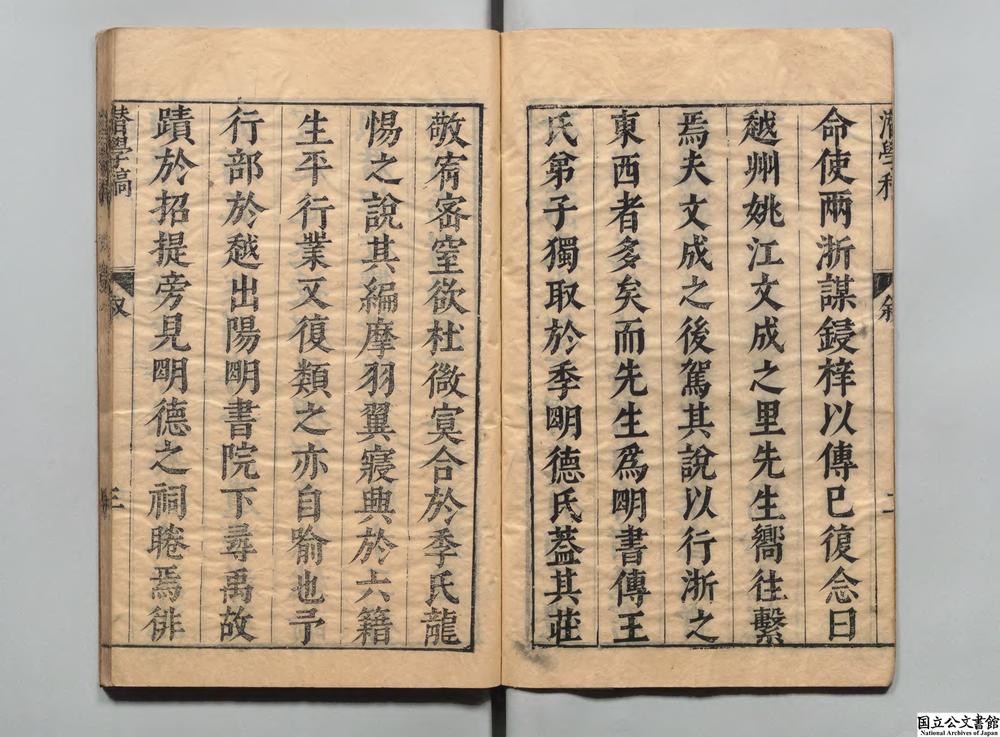 命使兩浙謀鋟梓以傳巳復念曰
越州姚江文成之里先生嚮往繫
焉夫文成之後駕其說以行浙之
東西者多矣而先生爲明書傳王
氏弟子獨取於季明德氏葢其莊
敬宥密窒欲杜微寔合於季氏龍
惕之說其編摩羽翼寢興於六籍
生平行業又復類之亦自喻也予
行部於越出陽明書院下尋禹故
蹟於招提旁見明德之祠睠焉徘
潛學稿
敘
三
二
国立公文書館
National Archives of Japan